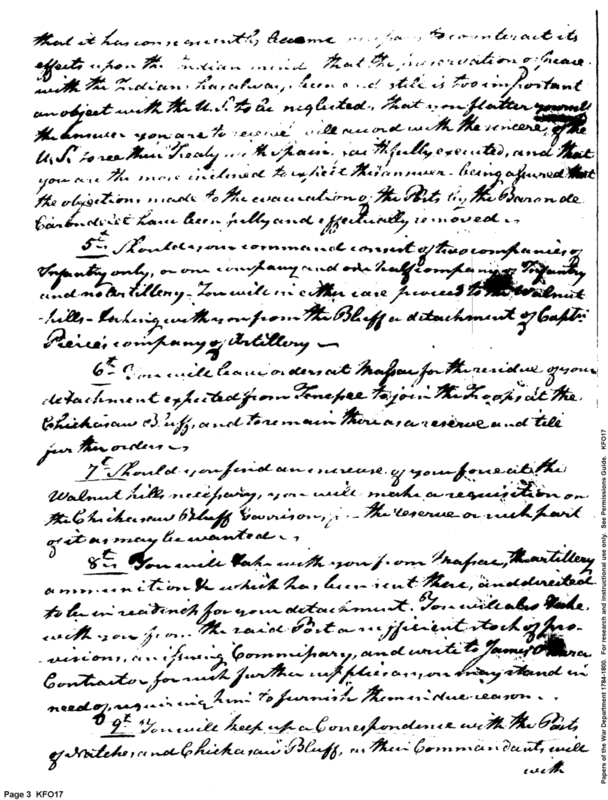 that it has consequently become necessary to counteract its
effects upon the Indian mind that the preservation of peace
with the Indians has always been and still is too important
an object with the U.S. to be neglected, that you flatter yourself
the answer you are to receive will accord with the sincere of the
U.S. to see their Treaty with Spain, faithfully executed, and that
you are the more inclined to expect this answer being assured that
the objections made to the evacuation of the Posts by the Baron de
Carondelet have been fully and effectually removed
5th Should your command consist of two companies of
Infantry only, or one company and one half company of Infantry
and no Artillery. You will in either case proceed to the Walnut
hills taking with you from the Bluff a detachment of Captn
Peirce's company of Artillery
6th You will leave orders at Massac for the residue of your
detachment expected from Tenessee to join the Troops at the
Chickasaw Bluff, and to remain there as a reserve and till
further orders
7th Should you find an increase of your force at the
Walnut hills necessary, you will make a requisition on
the Chickasaw Bluff Garrison, for the reserve or such part
of it as may be wanted
8th You will take with you from Massac, the artillery
ammunition &c which has been sent there, and directed
to be in readiness for your detachment. You will also take
with you from the said Post a sufficient stock of pro-
visions, an issuing Commissary, and write to James O'Hara
Contractor for such further supplies as you may stand in
need of, requiring him to furnish them in due season
9th You will keep up a Correspondence with the Posts
of Natches and Chickasaw Bluff, as their Commandants will
with
Page 3 KFO17
Papers of the War Department 1784-1800. For research and instructional use only. See Permissions Guide. KFO17